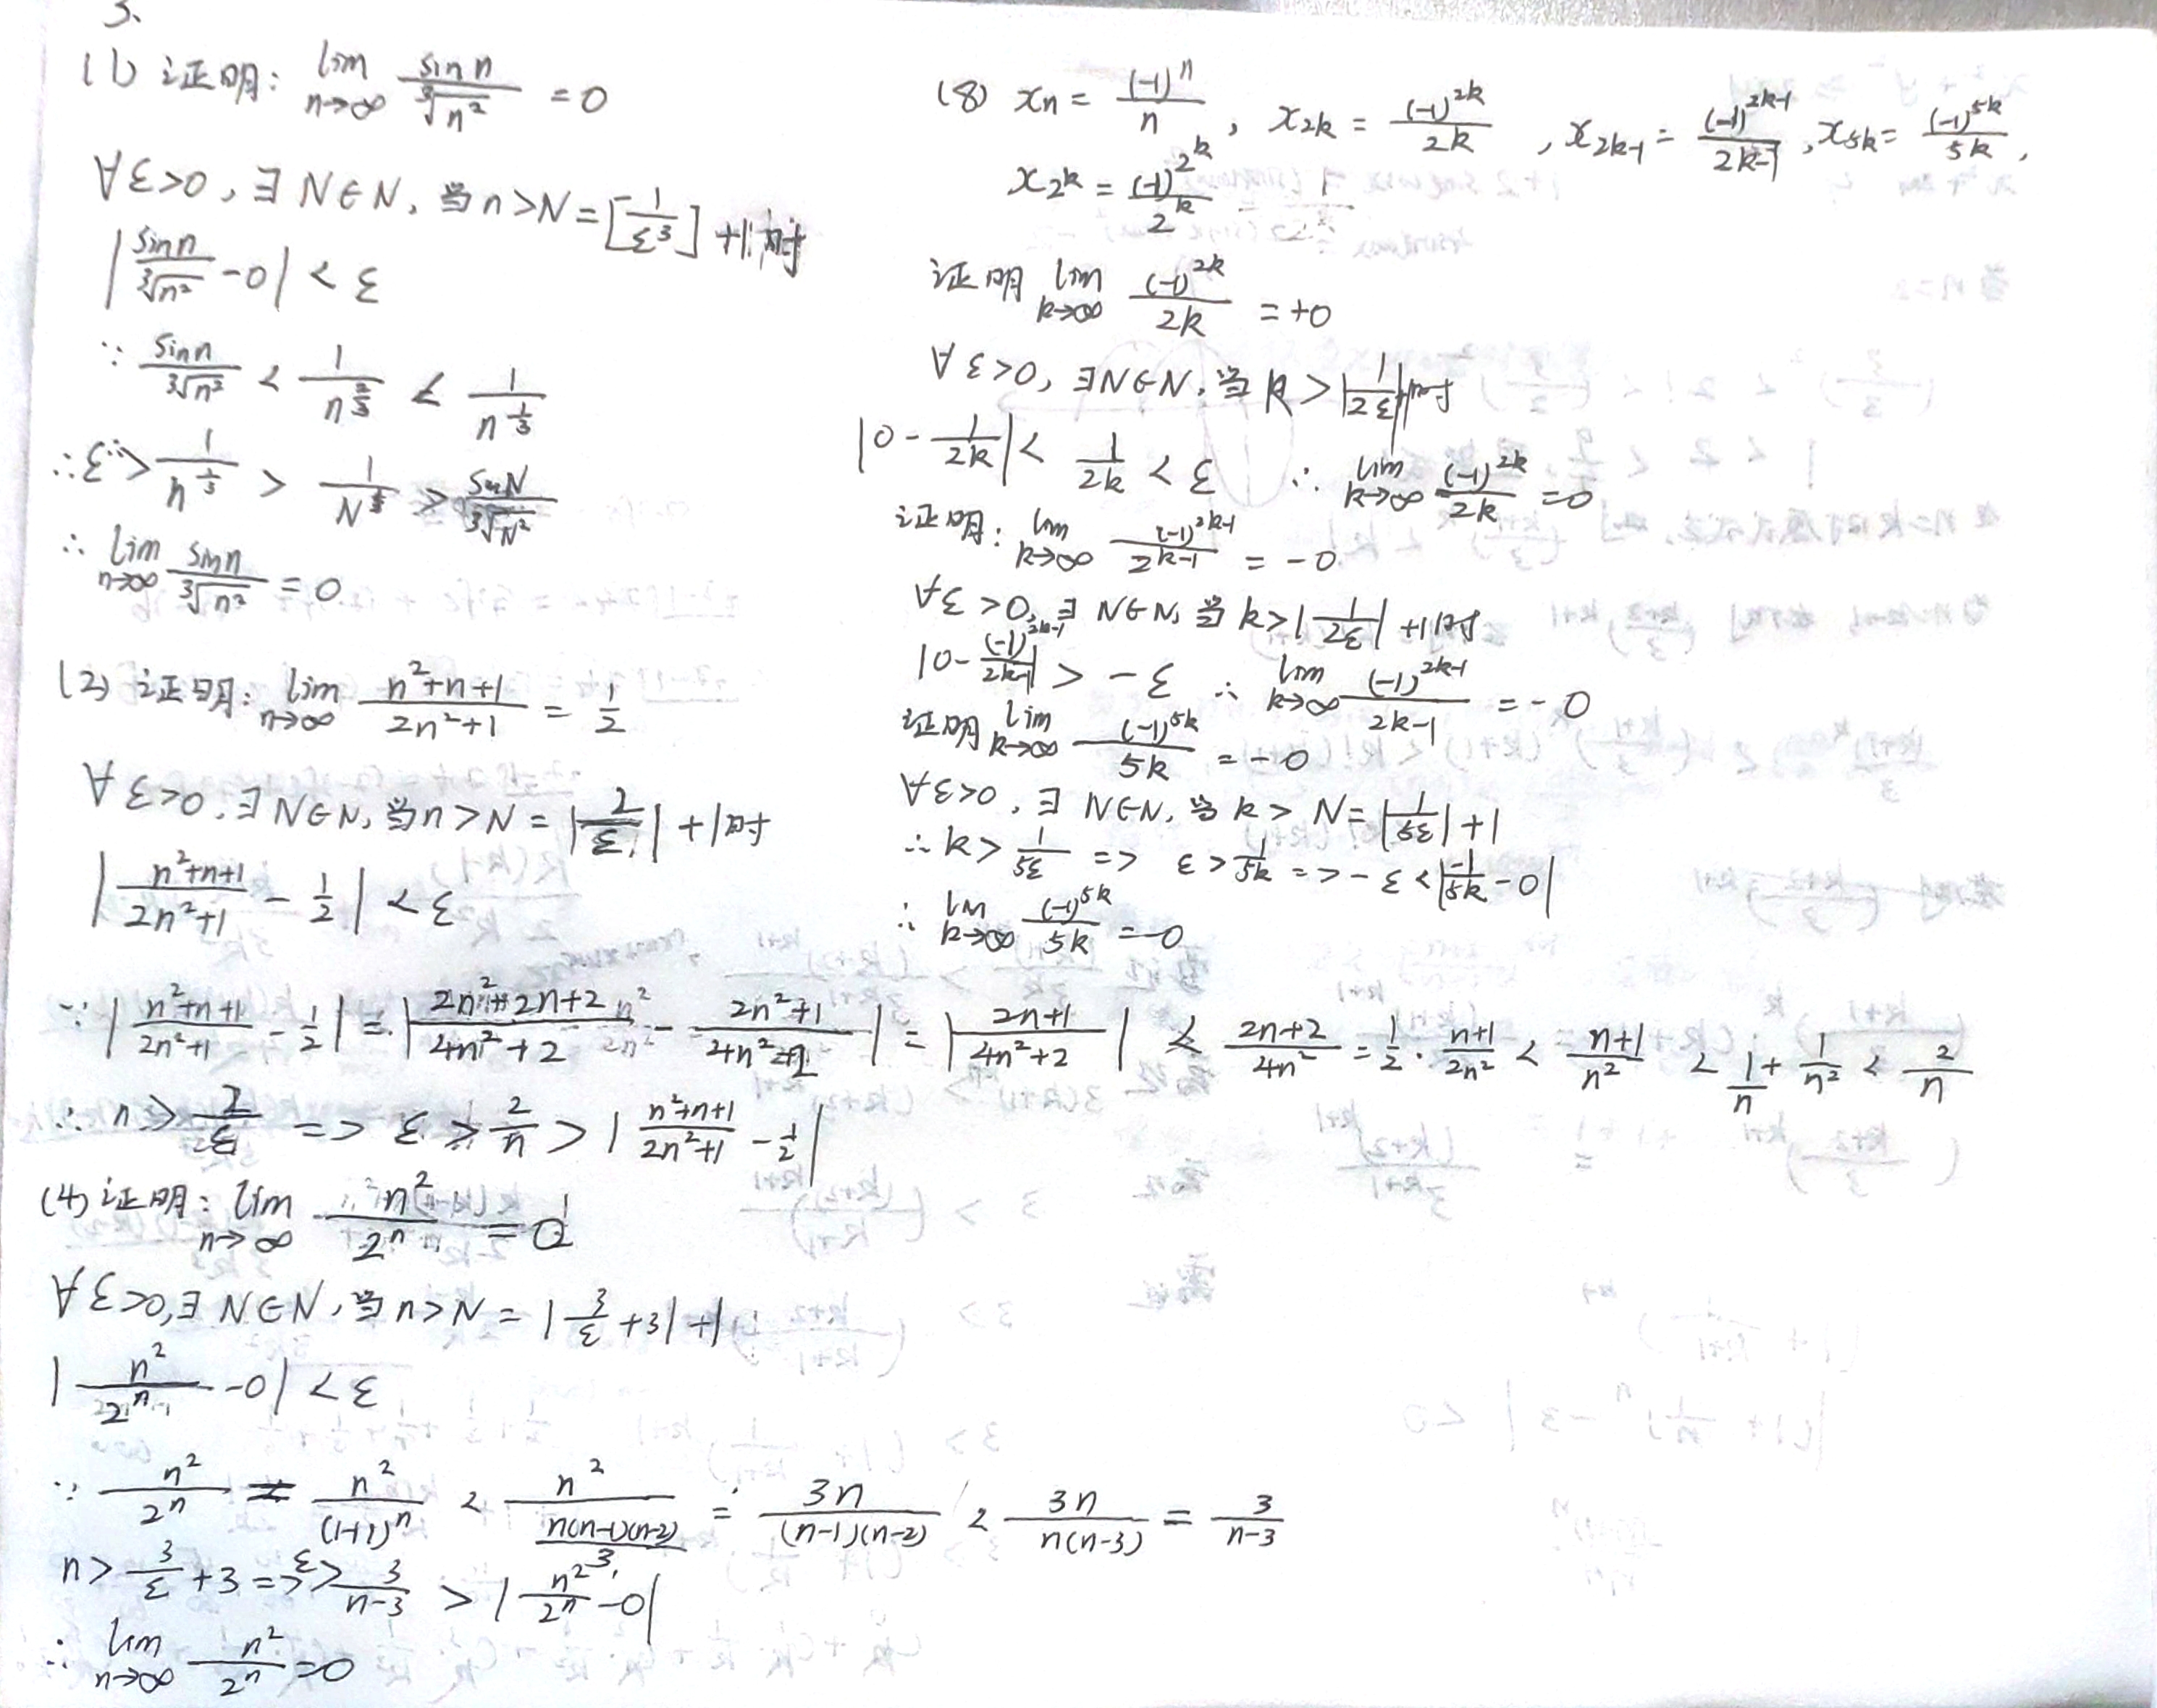 3.
(1) 证明: lim n→∞ sin n / ∛n² = 0
∀ε>0, ∃N∈N, 当n>N=[1/ε³]+1时
|sin n / ∛n² - 0| < ε
∵ sin n / ∛n² < 1/n^(2/3) < 1/n^(1/3)
∴ ε > 1/n^(1/3) > 1/N^(1/3) > sin N / ∛N²
∴ lim n→∞ sin n / ∛n² = 0
(2) 证明: lim n→∞ (n²+n+1)/(2n²+1) = 1/2
∀ε>0, ∃N∈N, 当n>N=|2/ε|+1时
|(n²+n+1)/(2n²+1) - 1/2| < ε
∵ |(n²+n+1)/(2n²+1) - 1/2| = |(2n²+2n+2)/(4n²+2) - (2n²+1)/(4n²+2)| = |(2n+1)/(4n²+2)| < (2n+2)/4n² = 1/2 · (n+1)/2n² < (n+1)/n² < 1/n + 1/n² < 2/n
∴ n > 2/ε => ε > 2/n > |(n²+n+1)/(2n²+1) - 1/2|
(4) 证明: lim n→∞ n²/2ⁿ = 0
∀ε>0, ∃N∈N, 当n>N=|3/ε+3|+1
|n²/2ⁿ - 0| < ε
∵ n²/2ⁿ = n²/(1+1)ⁿ < n²/(n(n-1)(n-2)/3) = 3n/((n-1)(n-2)) < 3n/(n(n-3)) = 3/(n-3)
n > 3/ε + 3 => ε > 3/(n-3) > |n²/2ⁿ - 0|
∴ lim n→∞ n²/2ⁿ = 0
(8) xn = (-1)ⁿ/n, x2k = (-1)^(2k)/2k, x2k-1 = (-1)^(2k-1)/(2k-1), x5k = (-1)^(5k)/5k,
x2^k = (-1)^(2^k)/2^k
证明 lim k→∞ (-1)^(2k)/2k = +0
∀ε>0, ∃N∈N, 当k>|1/2ε|+1时
|0 - 1/2k| < 1/2k < ε ∴ lim k→∞ (-1)^(2k)/2k = 0
证明: lim k→∞ (-1)^(2k-1)/(2k-1) = -0
∀ε>0, ∃N∈N, 当k>|1/2ε|+1时
|0 - (-1)^(2k-1)/(2k-1)| > -ε ∴ lim k→∞ (-1)^(2k-1)/(2k-1) = -0
证明 lim k→∞ (-1)^(5k)/5k = -0
∀ε>0, ∃N∈N, 当k>N=|1/5ε|+1
∴ k > 1/5ε => ε > 1/5k => -ε < |-1/5k - 0|
∴ lim k→∞ (-1)^(5k)/5k = -0